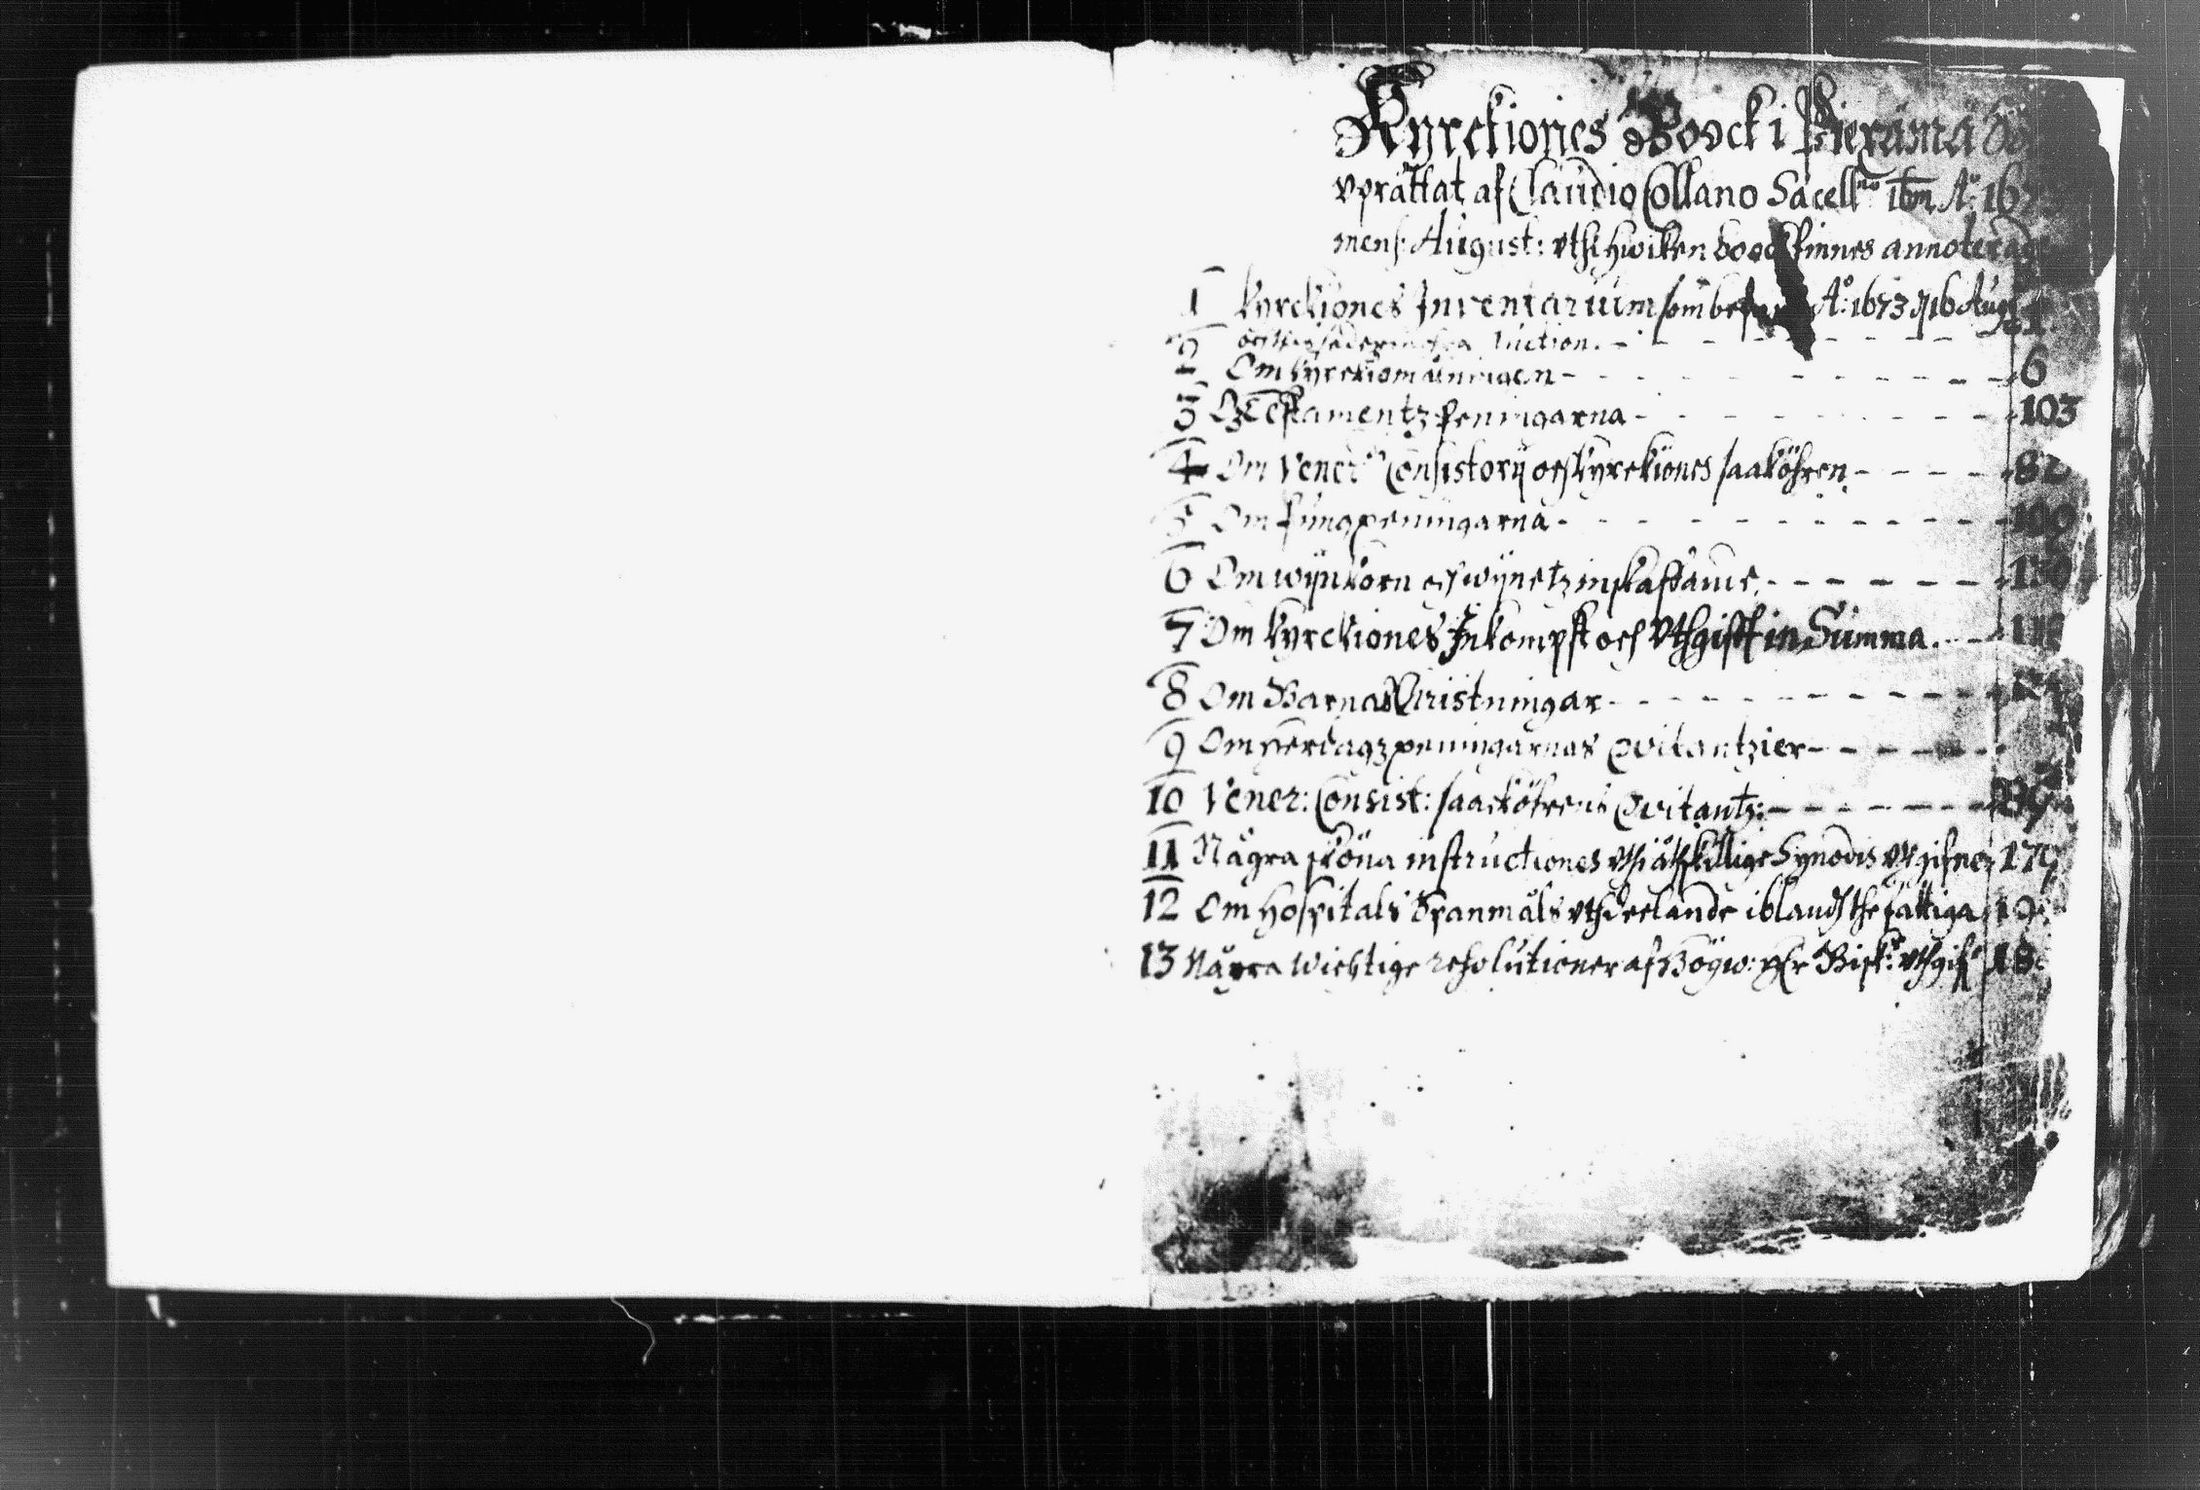 Kyrckiones Boock i Pierama
vprättat af Claudio Collano Sacell:no ibm A:o 167
mens: August: vthi hwilken boock finnes annoterade
1 Kyrckiones Inventarium som A:o 1673 d 16 Aug 1
Auction. - - - - -
2 Om Kyrckiomånningen - - - - - 6
3 Om Testamentz peningarna - - - - - 103
4 Om Vener: Consistorij och Kyrckiones saaköhren - - - - 82
5 Om peningarna - - - - -
6 Om wijnkorn och wijnetz inskafdanne - - - - - 130
7 Om Kyrckiones Inkompst och Vthgifft in Summa. - -
8 Om Barnas Christningar - - - - -
9 Om Herdagz peningarnas Qvitantzier - - - - -
10 Vener: Consist: saaköhrens Qvitantz: - - - - -
11 Några sköna instructiones vthi åthskillige Synodis vthgifne 17
12 Om Hospitals Spanmåls vthdeelande ibland the fattiga
13 Några Wichtige resolutioner af Högw: H:r Bisk: vthgif: 18